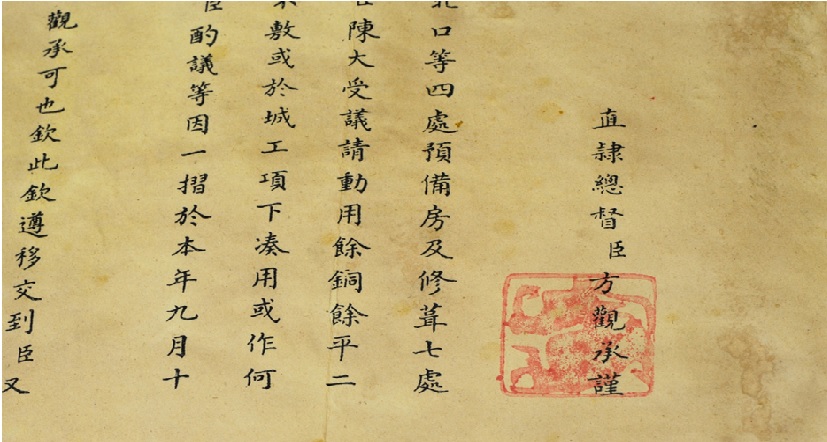 直隸總督臣方觀承謹
口等四處預備房及修葺七處
陳大受議請動用餘銅餘平二
敷或於城工項下湊用或作何
臣酌議等因一摺於本年九月十
觀承可也欽此欽遵移交到臣又